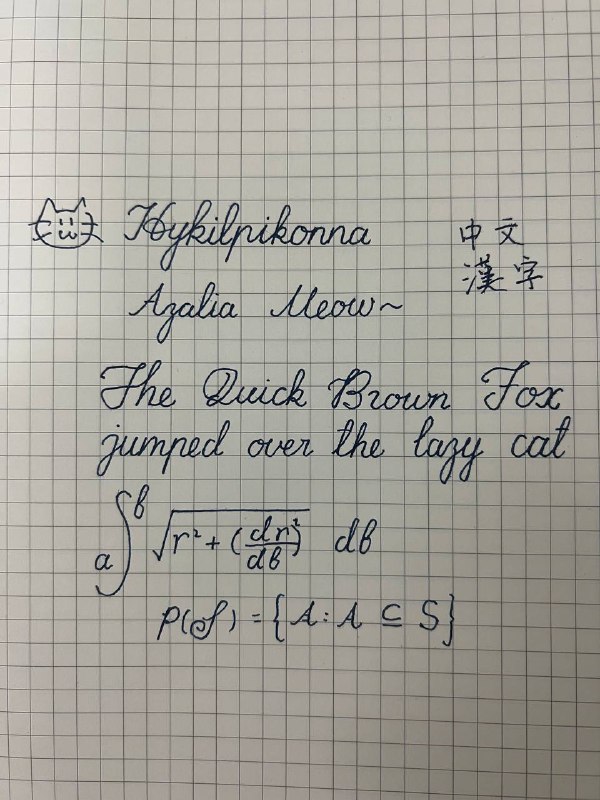 Hykilpikonna 中文
漢字
Azalia Meow~
The Quick Brown Fox
jumped over the lazy cat
∫_a^b √(r² + (dr/dθ)²) dθ
P(S) = {A : A ⊆ S}